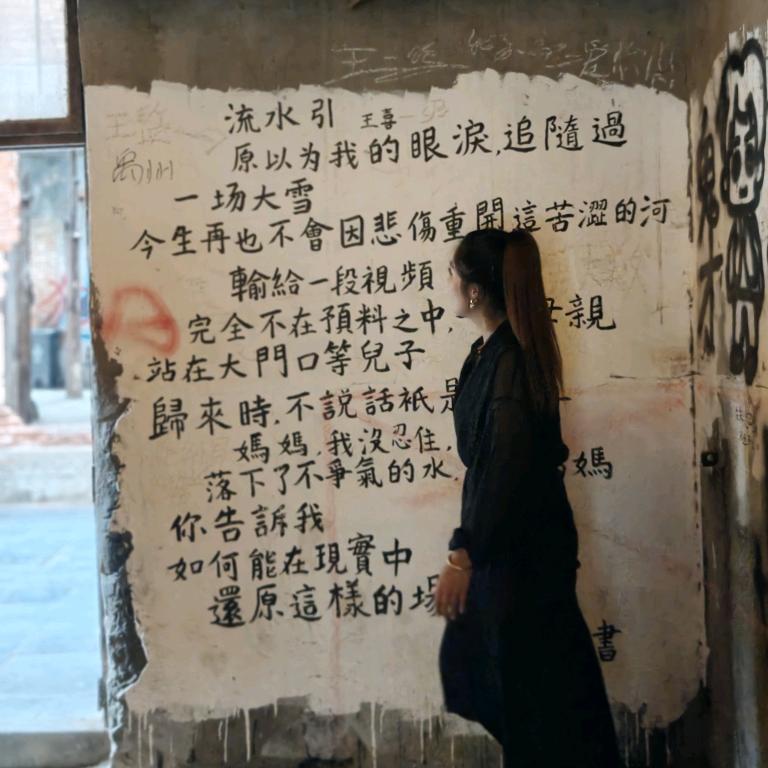 流水引 王喜
原以为我的眼淚,追隨過
一场大雪
今生再也不會因悲傷重開這苦澀的河
輸給一段視頻
完全不在預料之中, 母親
站在大門口等兒子
歸來時,不説話衹是
媽媽,我沒忍住,
落下了不爭氣的水, 媽
你告訴我
如何能在現實中
還原這樣的場
書